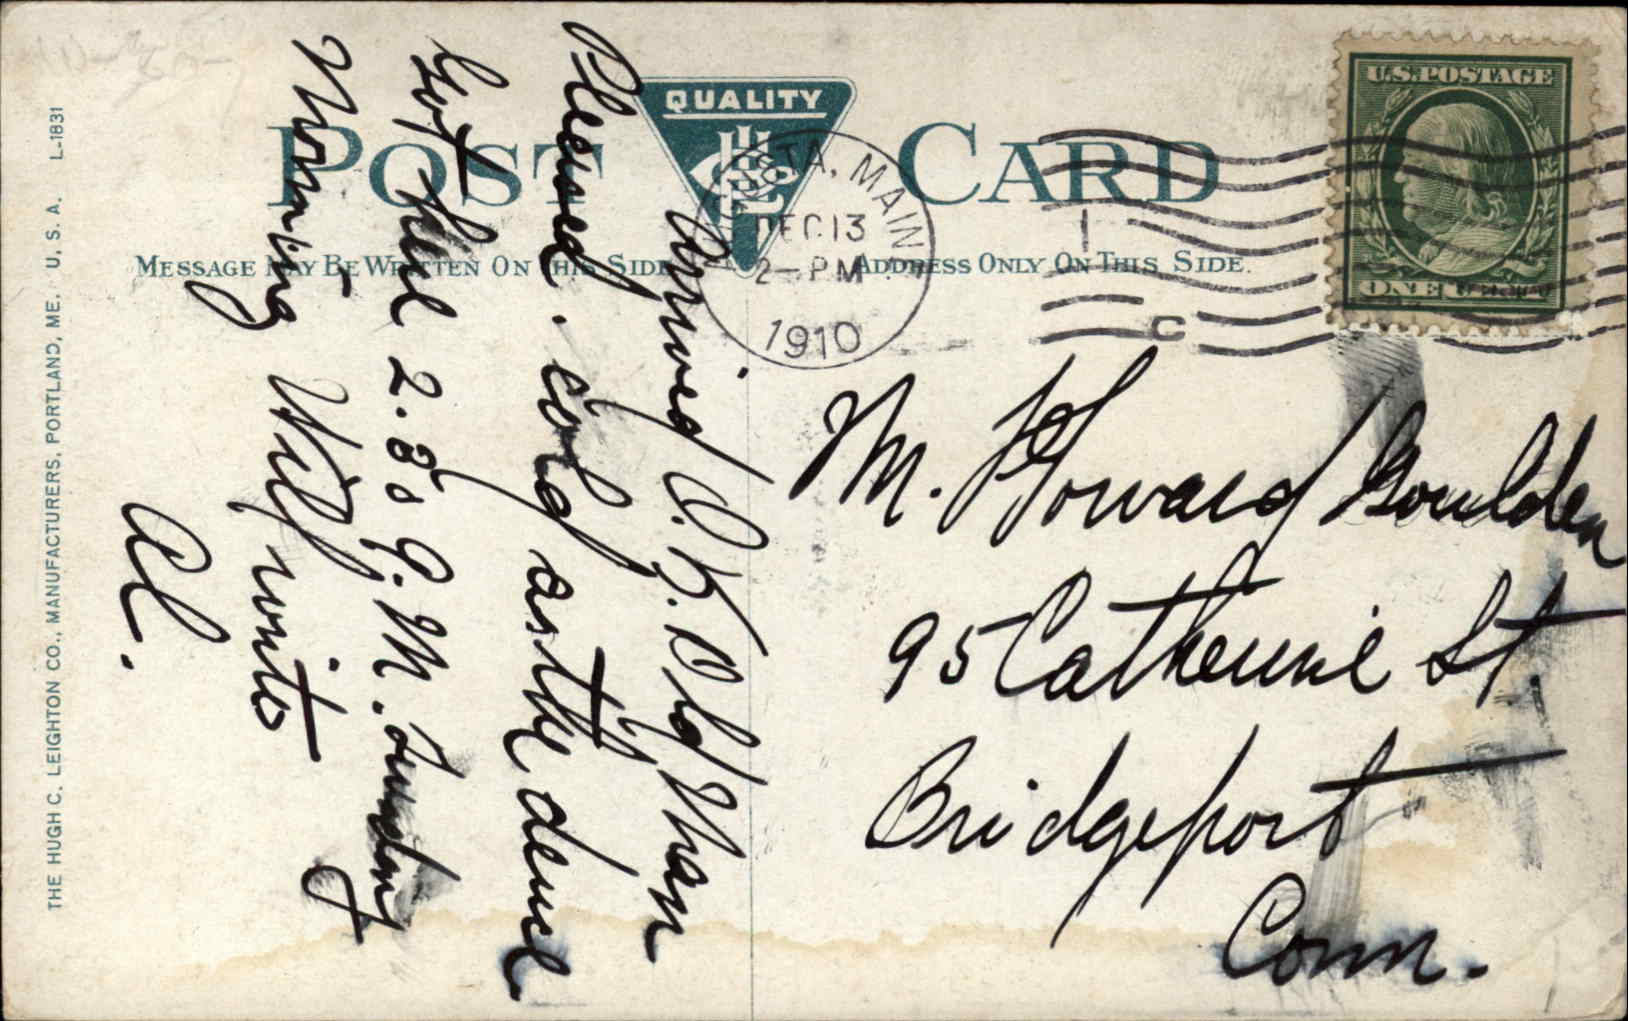 POST CARD
QUALITY
MESSAGE MAY BE WRITTEN ON THIS SIDE
ADDRESS ONLY ON THIS SIDE.
AUGUSTA, MAINE
DEC 13
2-PM
1910
C
U.S. POSTAGE
ONE CENT
M. Howard Goulden
95 Catherine St.
Bridgeport
Conn.
Arrived O.K. Old Man
Pleased. Cold as the deuce
Got here 2.30 A.M. Tuesday
Morning Will write
Al.
THE HUGH C. LEIGHTON CO., MANUFACTURERS, PORTLAND, ME. U. S. A. L-1831